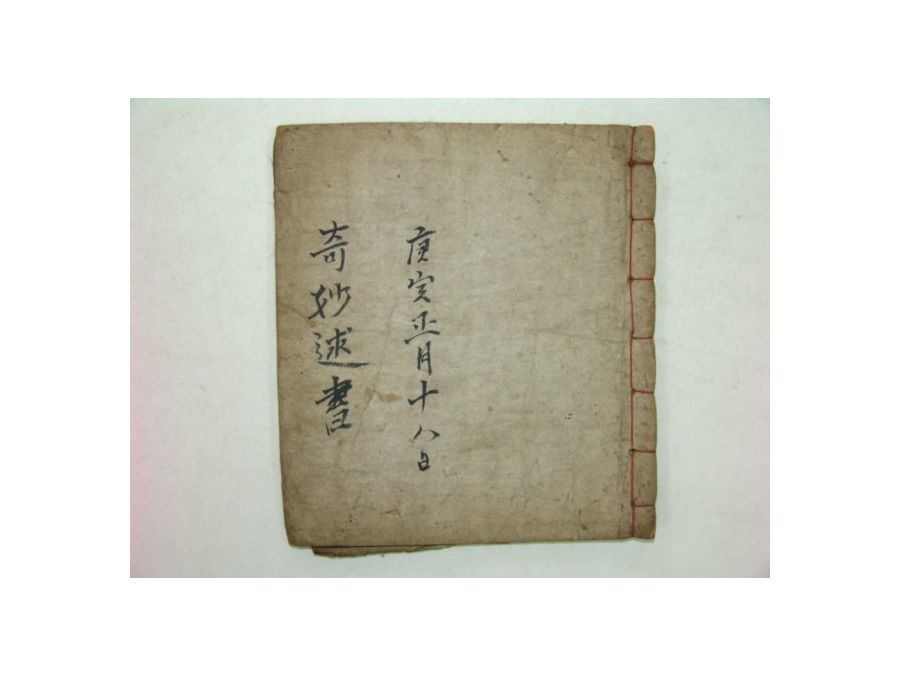 庚寅正月十八日
奇妙述書